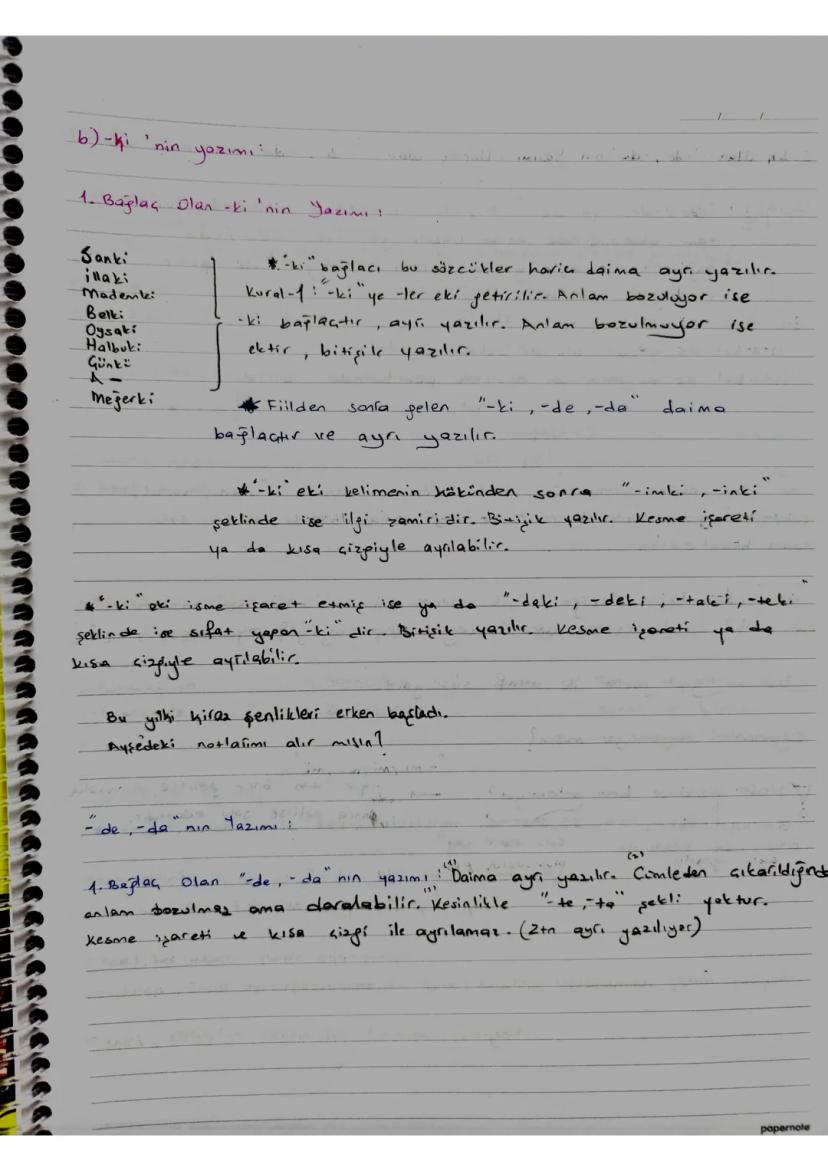 b) -ki 'nin yazımı:
1. Bağlaç Olan -ki 'nin Yazımı:
Sanki
İllaki
Mademki
Belki
Oysaki
Halbuki
Çünkü
A—
Meğerki
* "-ki" bağlacı bu sözcükler hariç daima ayrı yazılır.
Kural-1: "-ki" ye -ler eki getirilir. Anlam bozuluyor ise
-ki bağlaçtır, ayrı yazılır. Anlam bozulmuyor ise
ektir, bitişik yazılır.
* Fiilden sonra gelen "-ki, -de, -da" daima
bağlaçtır ve ayrı yazılır.
* "-ki" eki kelimenin kökünden sonra "-imki, -inki"
şeklinde ise ilgi zamiridir. Bitişik yazılır. Kesme işareti
ya da kısa çizgiyle ayrılabilir.
* "-ki" eki isme işaret etmiş ise ya da "-daki, -deki, -taki, -teki"
şeklinde ise sıfat yapan "-ki" dir. Bitişik yazılır. Kesme işareti ya da
kısa çizgiyle ayrılabilir.
Bu yılki kiraz şenlikleri erken başladı.
Ayşedeki notlarımı alır mısın?
"-de, -da" nın Yazımı:
1. Bağlaç Olan "-de, -da" nın yazımı: (1) Daima ayrı yazılır. (2) Cümleden çıkarıldığında
anlam bozulmaz ama daralabilir. (3) Kesinlikle "-te, -ta" şekli yoktur.
Kesme işareti ve kısa çizgi ile ayrılamaz. (Ztn ayrı yazılıyor)
papernote